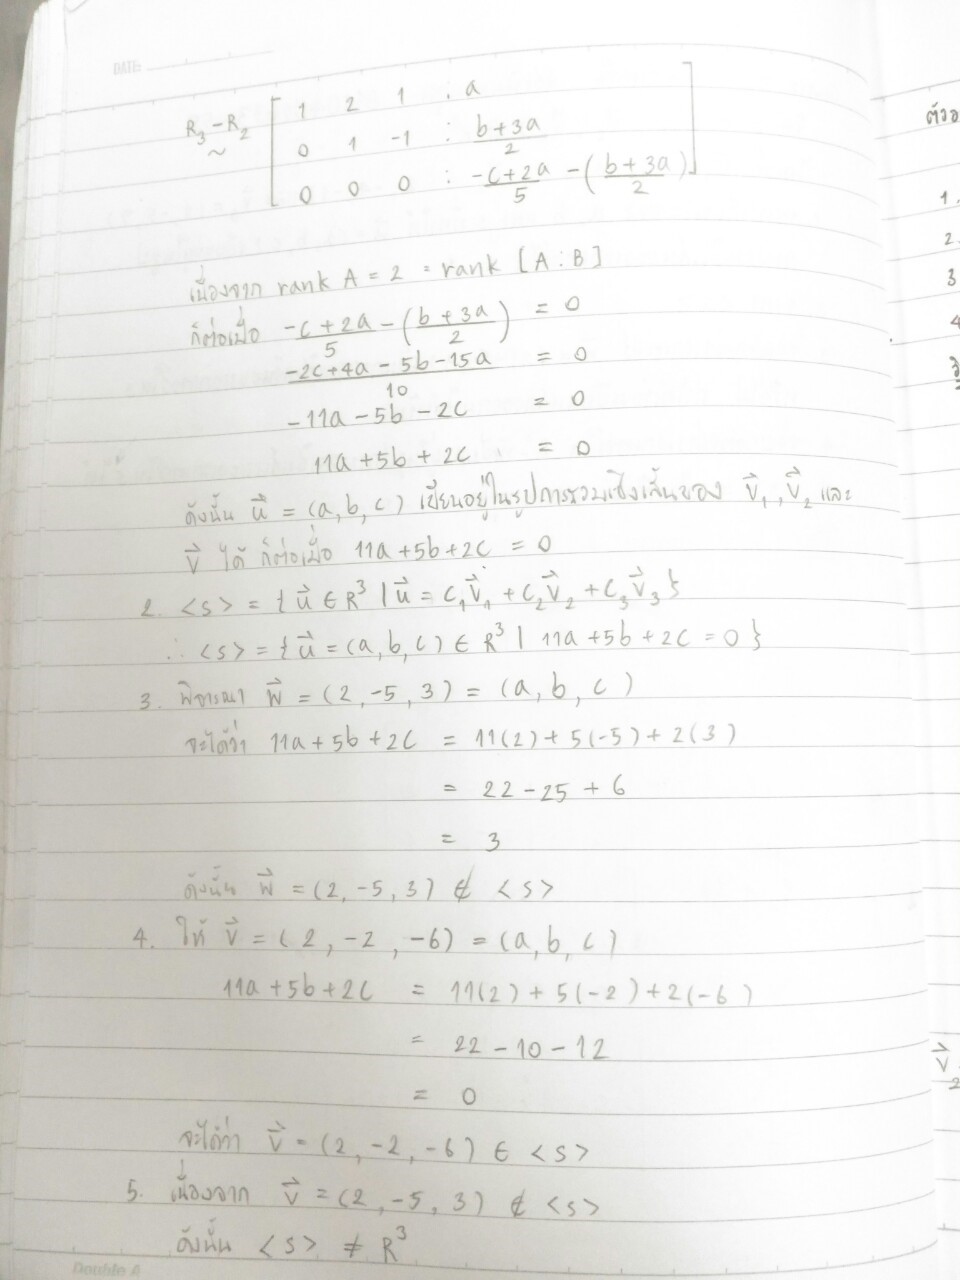 DATE:
R₃-R₂ ~ [ 1 2 1 : a
0 1 -1 : (b+3a)/2
0 0 0 : (-c+2a)/5 - ((b+3a)/2) ]
ตัวอ
1.
2.
3
4
เนื่องจาก rank A = 2 = rank [A:B]
ก็ต่อเมื่อ (-c+2a)/5 - ((b+3a)/2) = 0
(-2c+4a-5b-15a)/10 = 0
-11a-5b-2c = 0
11a+5b+2c = 0
ดังนั้น u⃗ = (a,b,c) เขียนอยู่ในรูปการรวมเชิงเส้นของ v⃗₁, v⃗₂ และ
v⃗ ได้ ก็ต่อเมื่อ 11a+5b+2c = 0
2. <s> = { u⃗ ∈ R³ | u⃗ = c₁v⃗₁ + c₂v⃗₂ + c₃v⃗₃ }
∴ <s> = { u⃗ = (a,b,c) ∈ R³ | 11a+5b+2c = 0 }
3. พิจารณา w⃗ = (2,-5,3) = (a,b,c)
จะได้ว่า 11a+5b+2c = 11(2)+5(-5)+2(3)
= 22-25+6
= 3
ดังนั้น w⃗ = (2,-5,3) ∉ <s>
4. ให้ v⃗ = (2,-2,-6) = (a,b,c)
11a+5b+2c = 11(2)+5(-2)+2(-6)
= 22-10-12
= 0
v⃗₂
จะได้ว่า v⃗ = (2,-2,-6) ∈ <s>
5. เนื่องจาก v⃗ = (2,-5,3) ∉ <s>
ดังนั้น <s> ≠ R³
Double A